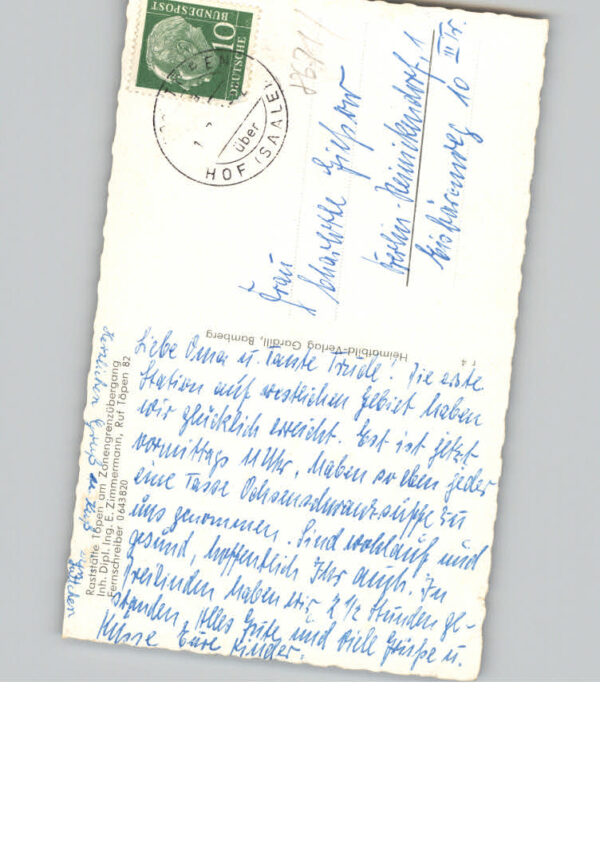 DEUTSCHE
BUNDESPOST
10
TÖPEN
über
HOF (SAALE)
Frau
Charlotte
Berlin Reinickendorf, 1
Eisbärenweg 10 III Tr.
Heimatbild-Verlag Gardill, Bamberg
Raststätte Töpen am Zonengrenzübergang
Inh. Dipl. Ing. E. Zimmermann, Ruf Töpen 82
Fernschreiber 0643820
Liebe Oma u. Tante Trude! Die erste
Station auf westlichen Gebiet haben
wir glücklich erreicht. Est ist jetzt
vormittags 11 Uhr. Haben so eben jeder
eine Tasse Ochsenschwanzsuppe zu
uns genommen. Sind wohlauf und
gesund, hoffentlich Ihr auch. In
Dreilinden haben wir 2 1/2 Stunden ge-
standen. Alles Gute und viele Grüße u.
Küsse Eure Kinder.
Herzlichen Gruß u. Kuß